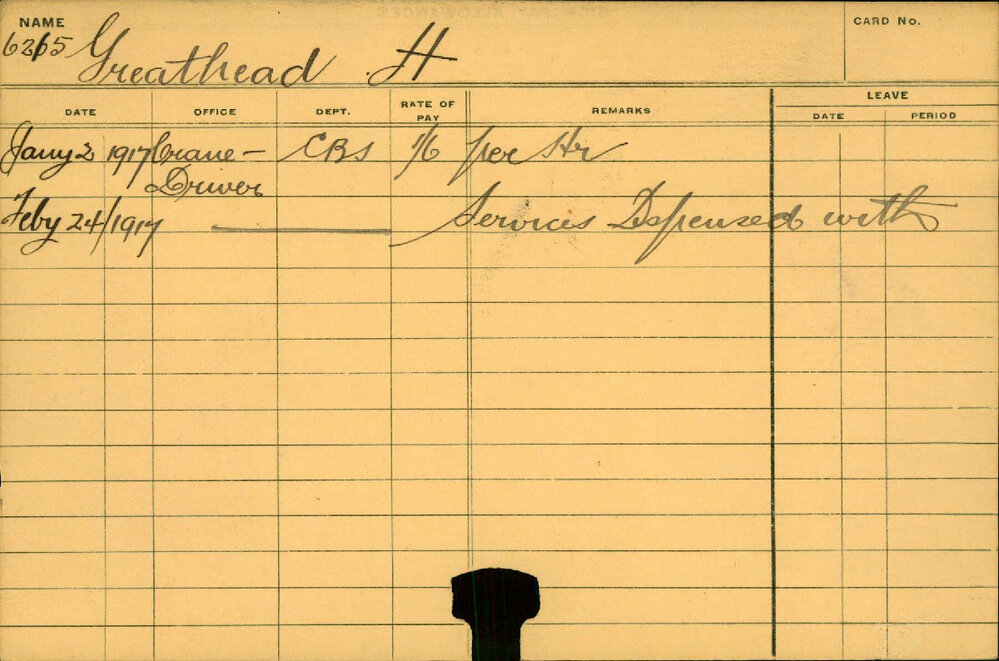 NAME
CARD No.
6265 Greathead H
DATE OFFICE DEPT. RATE OF PAY REMARKS LEAVE
DATE PERIOD
Jany 2 1917 Crane- CBS 1/6 per Hr
Driver
Feby 24/1917 Services Dispensed with